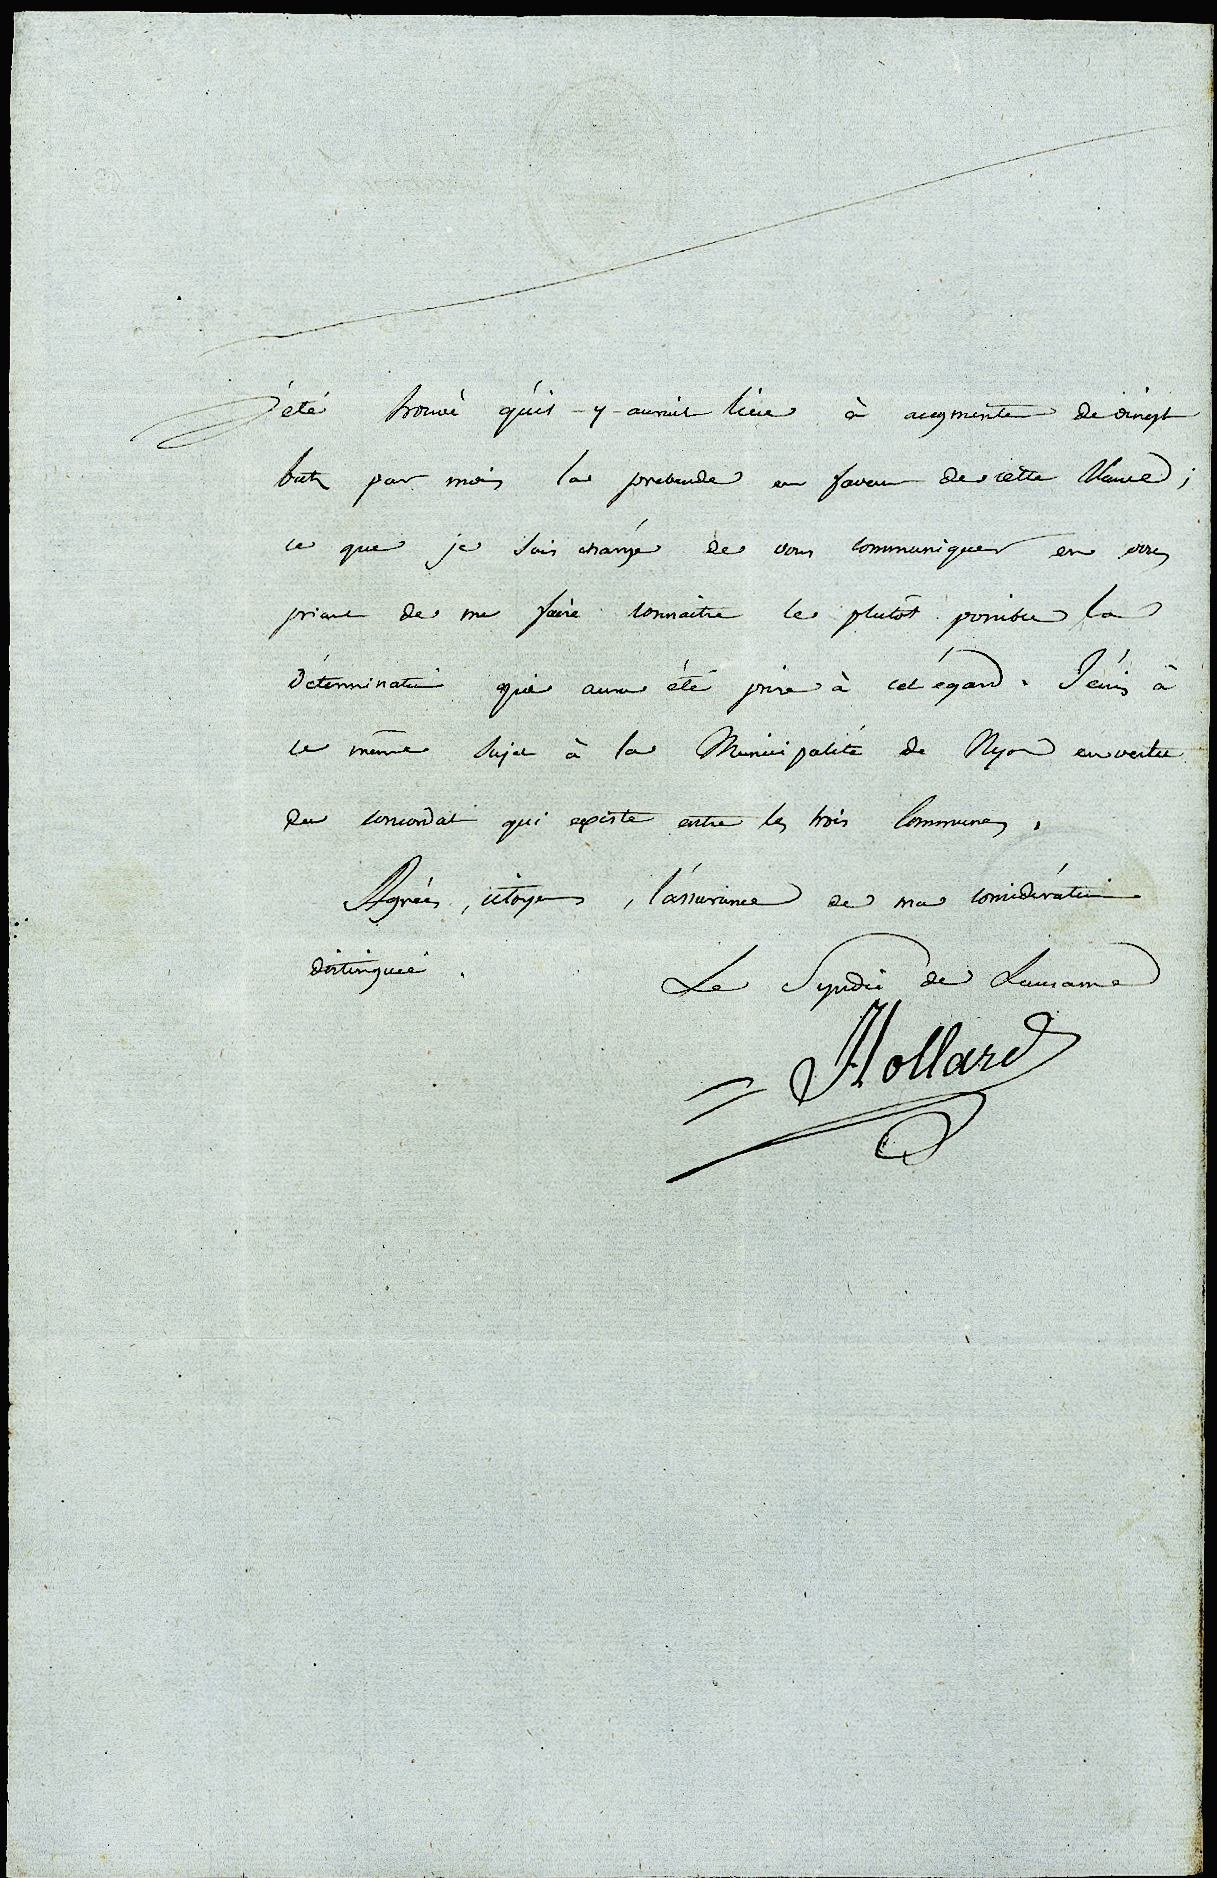 été trouvé qu'il-y-auroit lieu à augmenter de vingt
batz par mois la prebende en faveur de cette Veuve ;
ce que je suis chargé de vous communiquer en vous
priant de me faire connaitre le plutôt possible la
détermination qui aura été prise à cet égard. J'écris à
ce même sujet à la Municipalité de Nyon en vertu
du concordat qui existe entre les trois Communes.
Agréés, citoyens, l'assurance de ma considération
distinguée.
Le Syndic de Lausanne
Hollard